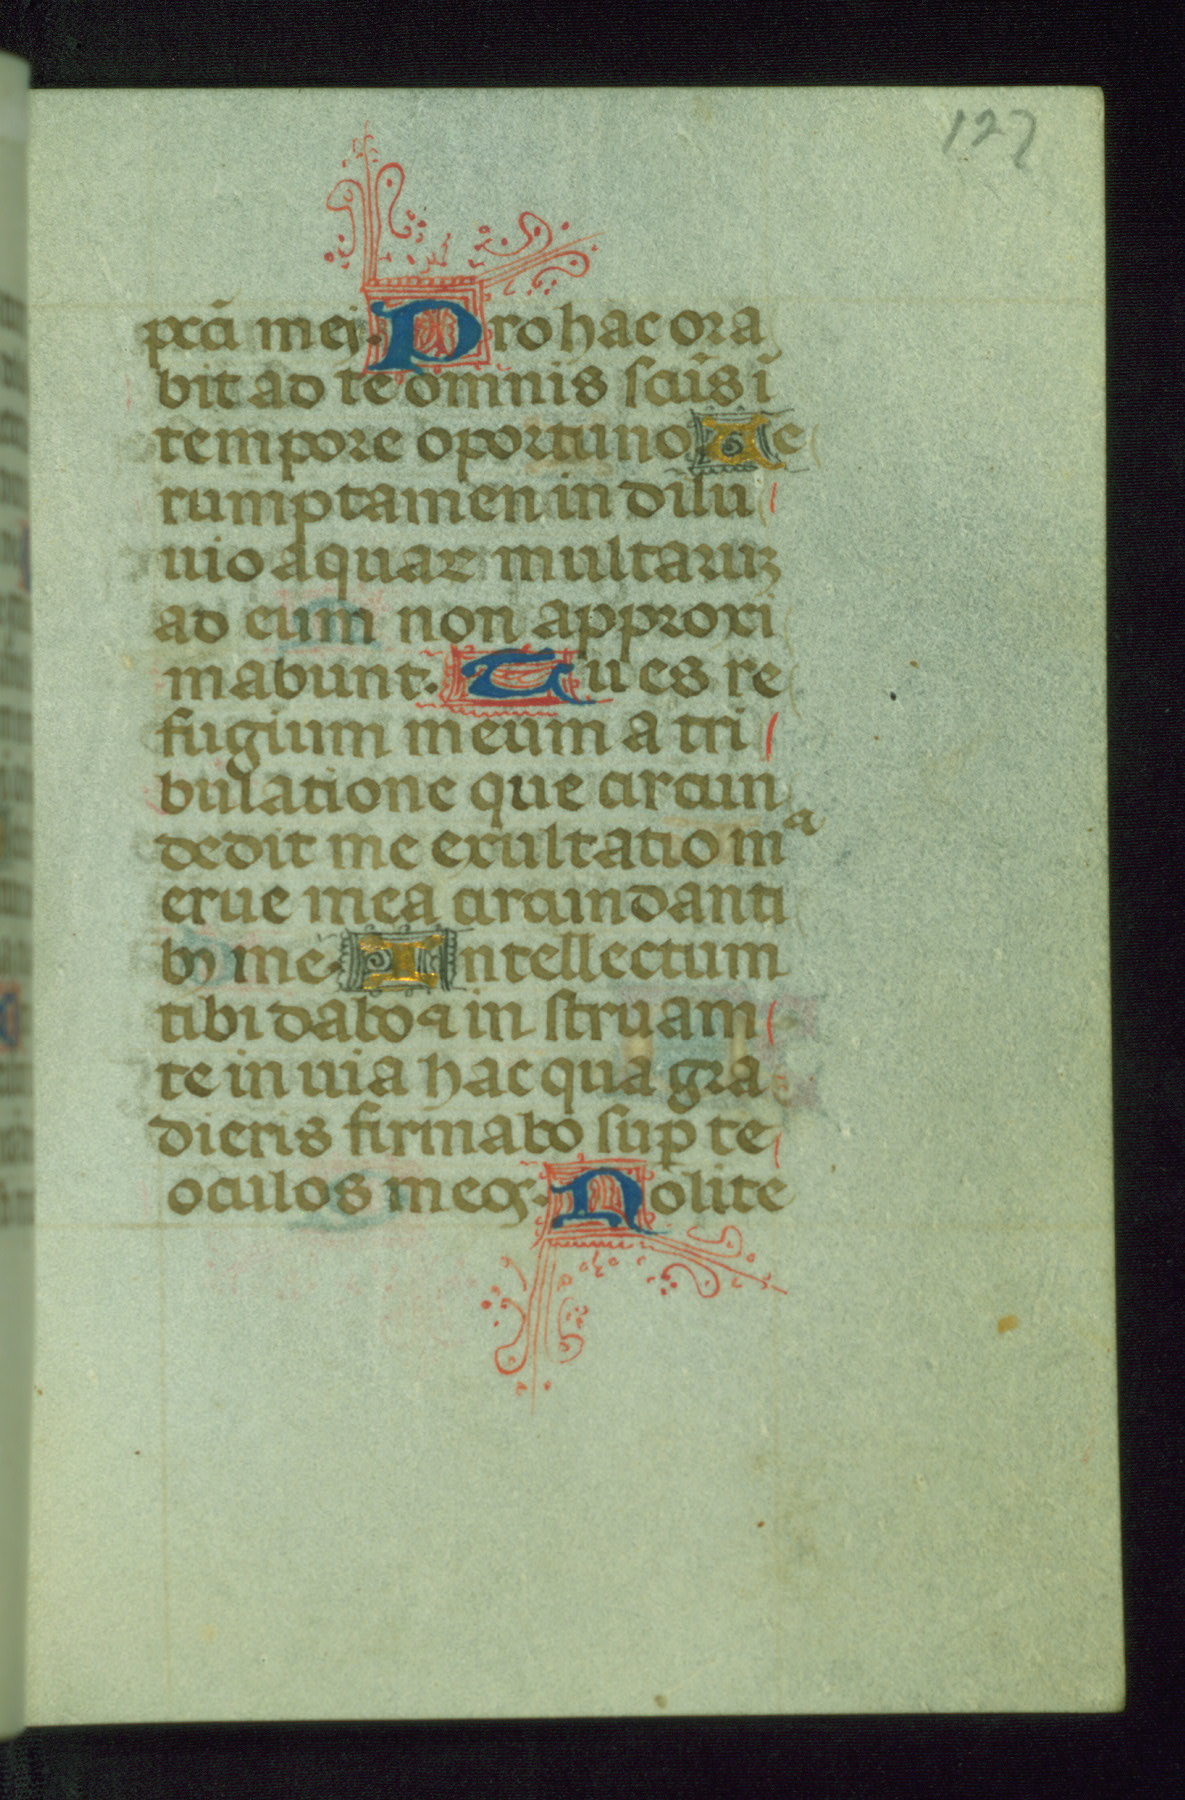 127
pccī mei. Pro hac ora
bit ad te omnis scūs ī
tempore oportuno. Ue
rumptamen in dilu
uio aquaꝝ multaruꝫ
ad eum non approxi
mabunt. Tu es re
fugium meum a tri
bulatione que circun
dedit me exultatio mᵃ
erue mea circundanti
bꝰ me. Intellectum
tibi dabo ⁊ in struam
te in uia hac qua gra
dieris firmabo suꝑ te
oculos meos. Nolite